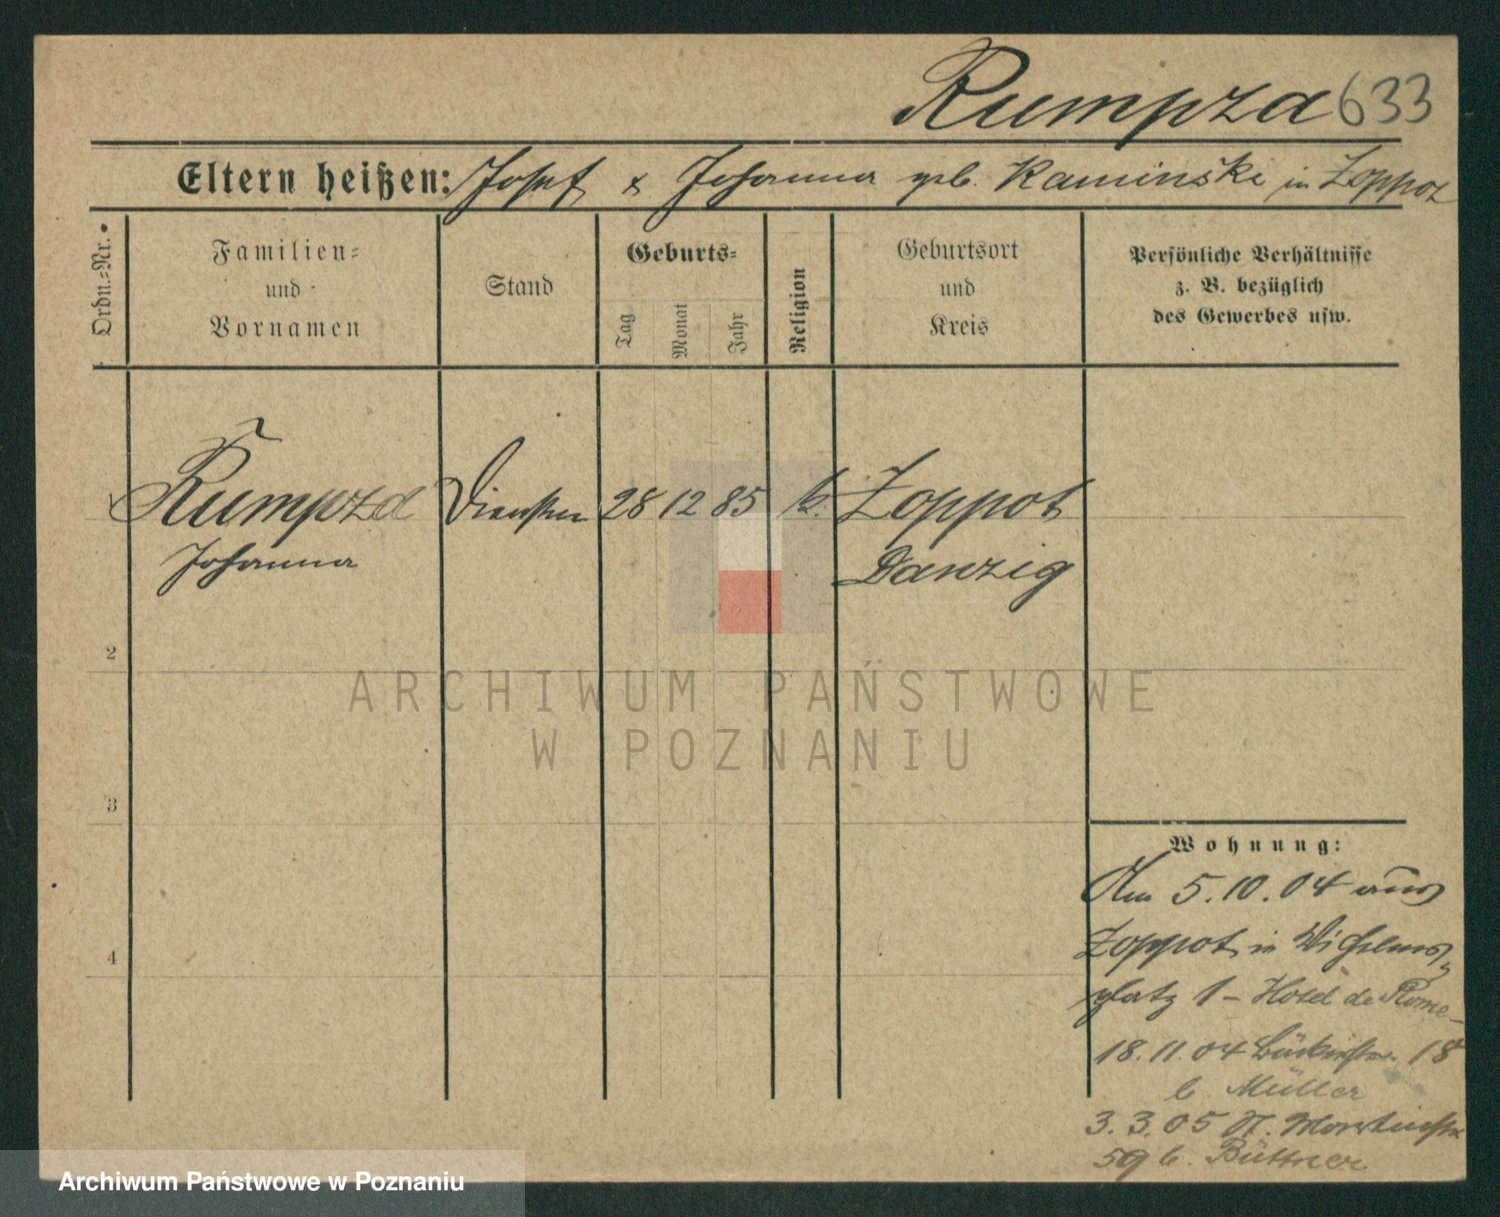 Rumpza 633
Eltern heißen: Josef & Johanna geb. Kaminski in Zoppot
Ordn.=Nr.
Familien=
und
Vornamen
Stand
Geburts=
Tag
Monat
Jahr
Religion
Geburtsort
und
Kreis
Persönliche Verhältnisse
z. B. bezüglich
des Gewerbes usw.
Rumpza 28 12 85 k. Zoppot
Johanna Danzig
2
3
4
Wohnung:
Am 5.10.04 aus
Zoppot in Wilhelms=
platz 1 - Hotel de Rome -
18.11.04 18
b. Müller
3.3.05 N.
59 b. Büttner
ARCHIWUM PAŃSTWOWE
W POZNANIU
Archiwum Państwowe w Poznaniu